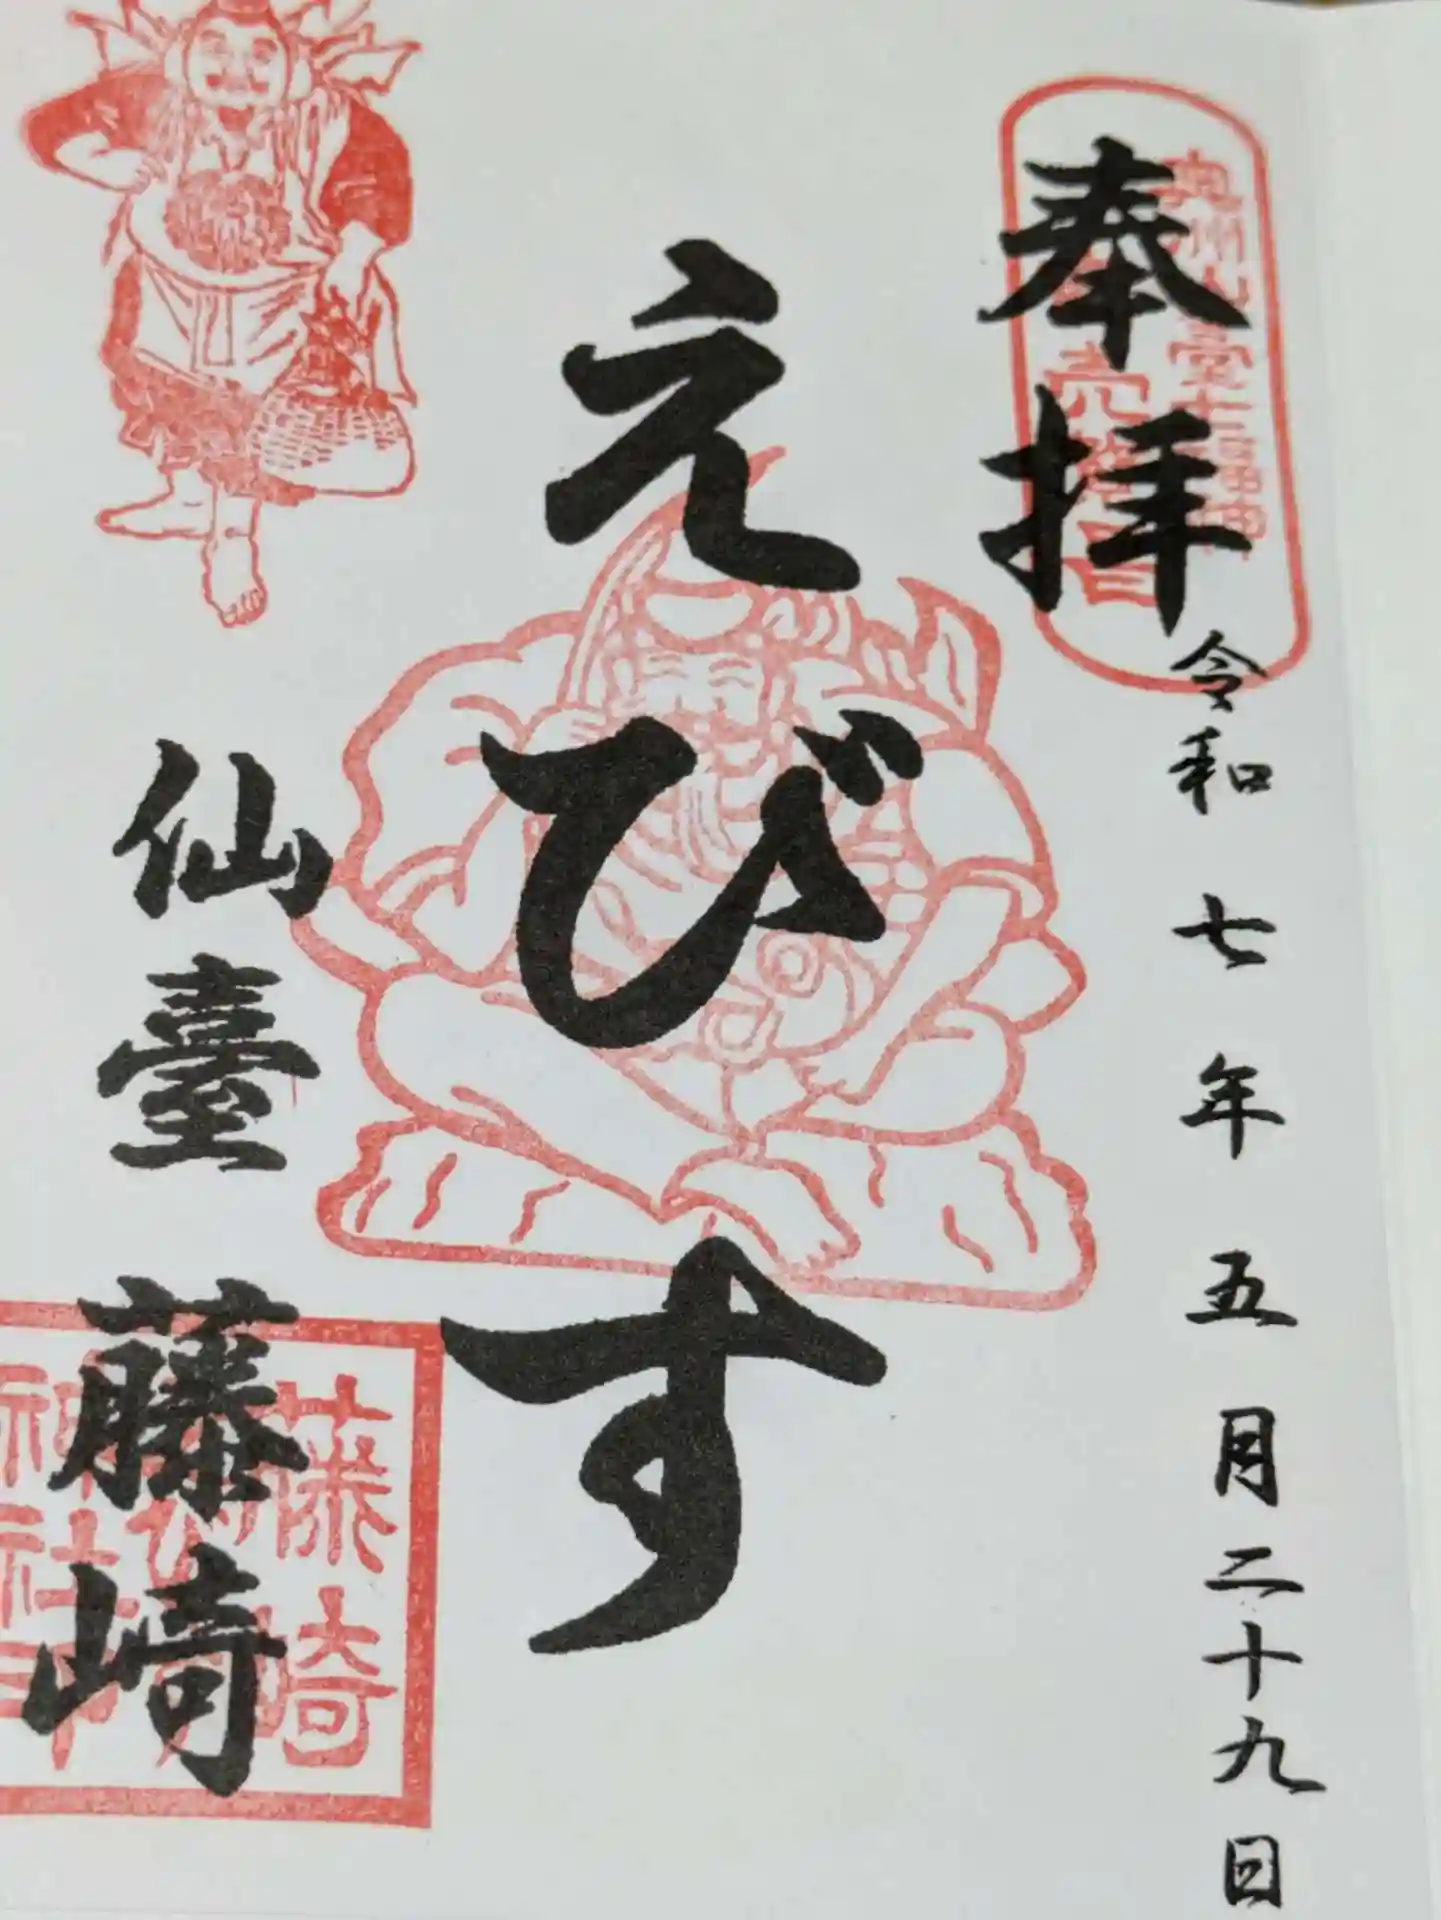 奉拝
令和七年五月二十九日
えびす
仙臺 藤崎
藤崎
神社